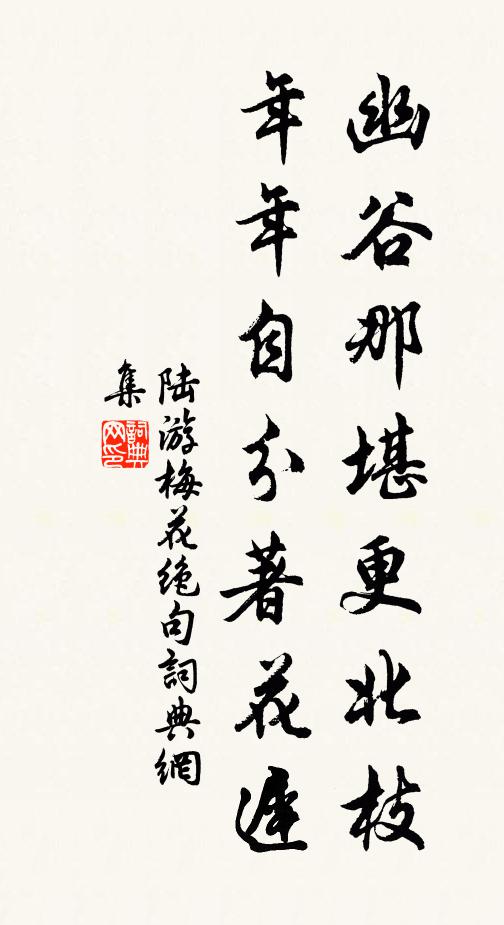 幽谷那堪更北枝
年年自分著花遲
陆游梅花绝句詞典網
集
詞典
网印